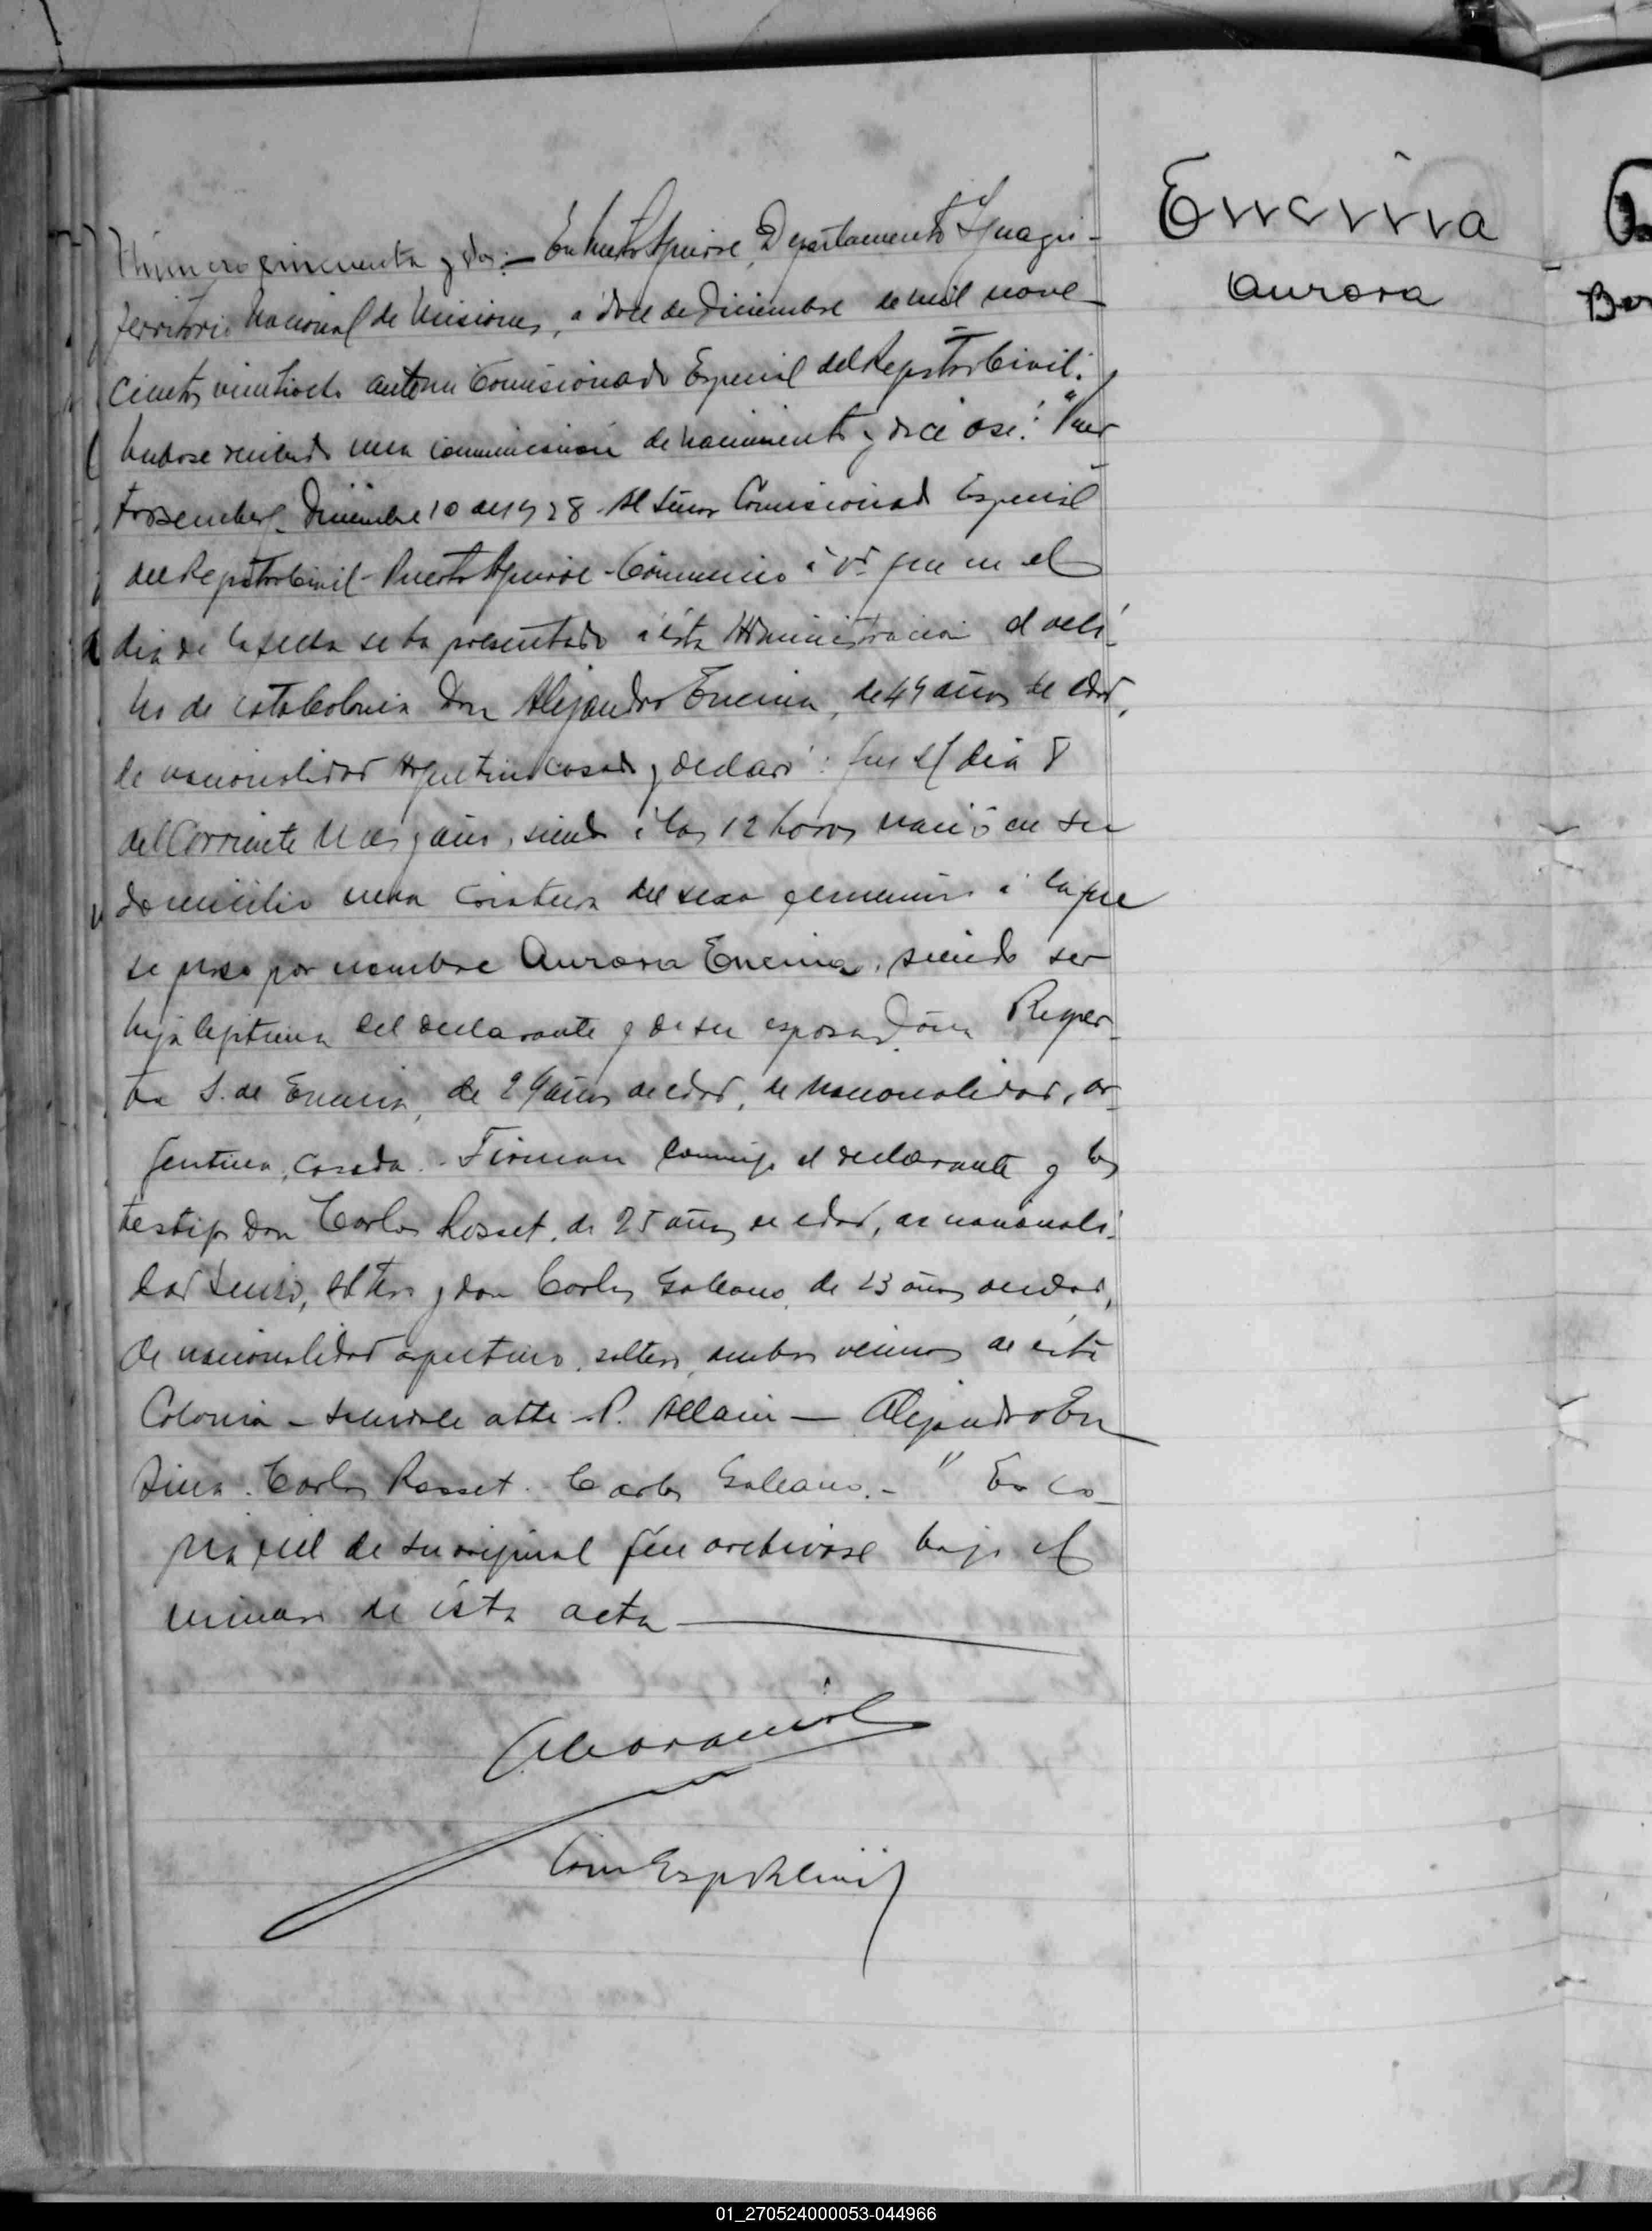 Encina
Aurora
Número cincuenta y dos:— En Puerto Aguirre, Departamento Iguazú-
Territorio Nacional de Misiones, a doce de Diciembre de mil nove-
cientos veintiocho ante mi Comisionado Especial del Registro Civil:
una comunicación de nacimiento y dice así: "Puer
to Diciembre 10 de 1928. Al Señor Comisionado Especial
del Registro Civil - Puerto Aguirre - Comunico á Vd. que en el
dia de la fecha se ha presentado á ésta Administracion el veci-
no de esta Colonia Don Alejandro Encina, de años de edad,
de nacionalidad Argentino casado y declaró: que el dia 8
del Corriente Mes y año, siendo á las 12 horas nació en su
domicilio una criatura del sexo femenino á la que
se puso por nombre Aurora Encina, siendo ser
hija legitima del declarante y de su esposa Doña Ruper-
ta S. de Encina, de años de edad, de nacionalidad, ar-
gentina, casada. - Firman conmigo el declarante y los
testigos Don Carlos Rosset, de 25 años de edad, de nacionali-
dad Suizo, soltero y don Carlos Galeano, de 23 años de edad,
de nacionalidad argentino, soltero, ambos vecinos de ésta
Colonia - Saludole atte - P. Allain — Alejandro En
sina. Carlos Rosset. Carlos Galeano. - " Es co-
pia fiel de su original que archivase bajo el
número de ésta acta
Com Esp R Civil
01_270524000053-044966